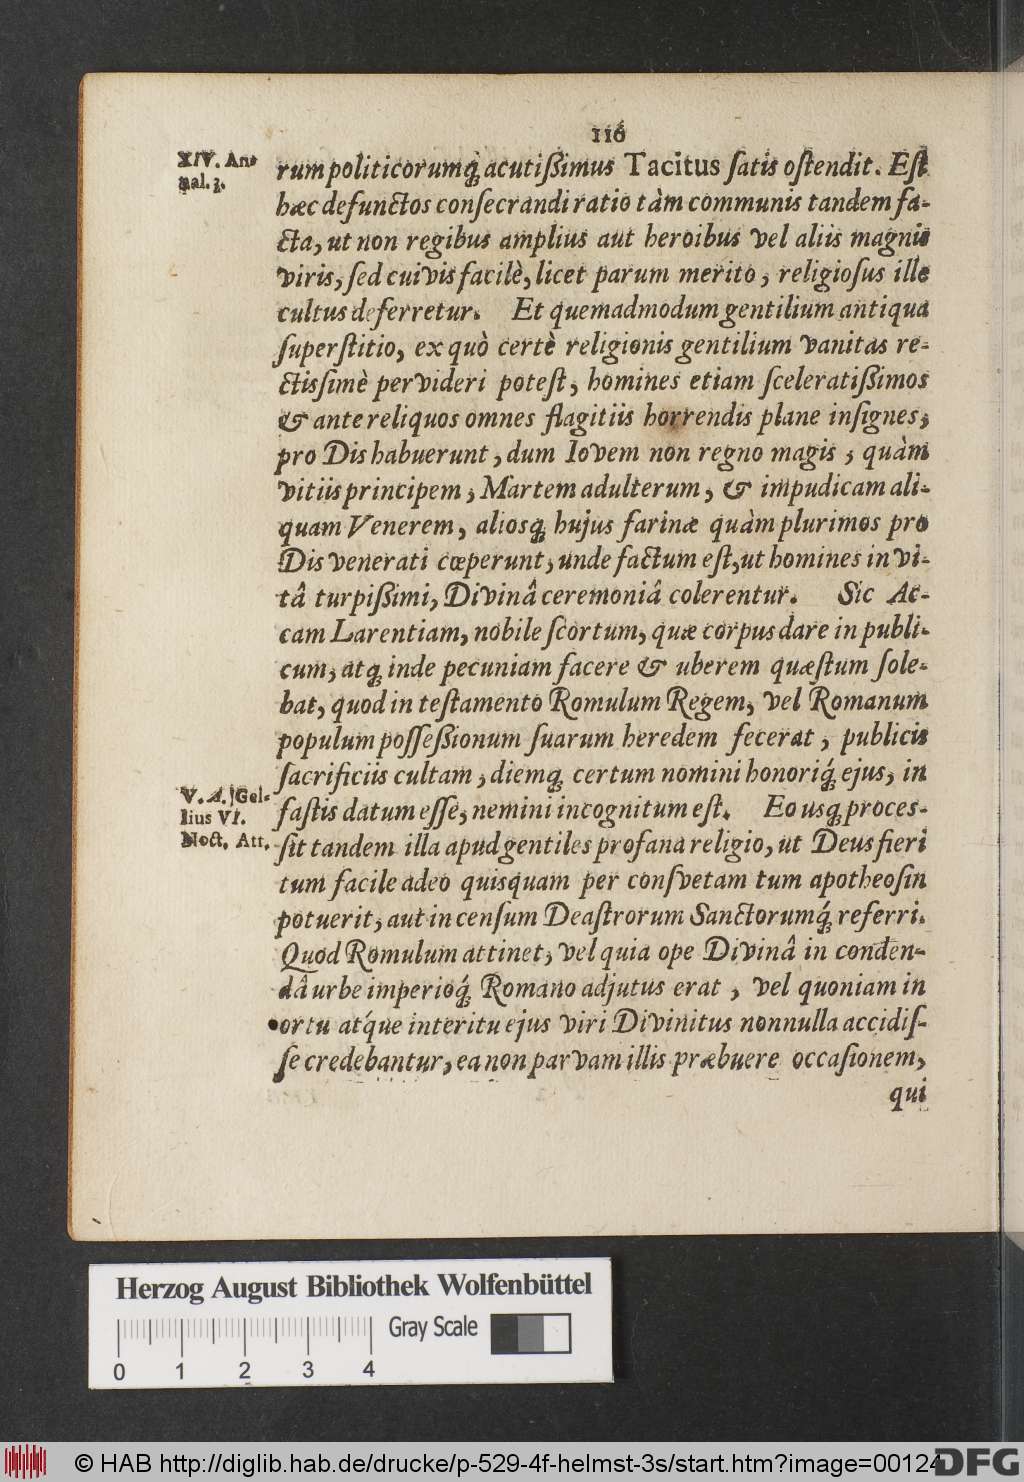 116
XIV. An-
nal. 3.
rum politicorumq́; acutißimus Tacitus ſatis oſtendit. Eſt
hæc defunctos conſecrandi ratio tàm communis tandem fa-
cta, ut non regibus amplius aut heroibus vel aliis magnis
viris, ſed cuivis facilè, licet parum merito, religioſus ille
cultus deferretur. Et quemadmodum gentilium antiqua
ſuperſtitio, ex quò certè religionis gentilium vanitas re-
ctisſimè pervideri poteſt, homines etiam ſceleratißimos
& ante reliquos omnes flagitiis horrendis plane inſignes,
pro Dis habuerunt, dum Iovem non regno magis, quàm
vitiis principem, Martem adulterum, & impudicam ali-
quam Venerem, aliosq; hujus farinæ quàm plurimos pro
Dis venerati cœperunt, unde factum eſt, ut homines in vi-
tâ turpißimi, Divinâ ceremoniâ colerentur. Sic Ac-
cam Larentiam, nobile ſcortum, quæ corpus dare in publi-
cum, atq; inde pecuniam facere & uberem quæſtum ſole-
bat, quod in teſtamento Romulum Regem, vel Romanum
populum poſſeßionum ſuarum heredem fecerat, publicis
ſacrificiis cultam, diemq; certum nomini honoriq́; ejus, in
V. A. Gel-
lius VI.
Noct. Att.
faſtis datum eſſe, nemini incognitum eſt. Eo usq; proces-
ſit tandem illa apud gentiles profana religio, ut Deus fieri
tum facile adeo quisquam per conſvetam tum apotheoſin
potuerit, aut in cenſum Deaſtrorum Sanctorumq́; referri.
Quod Romulum attinet, vel quia ope Divinâ in conden-
dâ urbe imperioq́; Romano adjutus erat, vel quoniam in
ortu atq́ue interitu ejus viri Divinitus nonnulla accidiſ-
ſe credebantur, ea non parvam illis præbuere occaſionem,
qui
Herzog August Bibliothek Wolfenbüttel
Gray Scale
0 1 2 3 4
© HAB http://diglib.hab.de/drucke/p-529-4f-helmst-3s/start.htm?image=00124
DFG